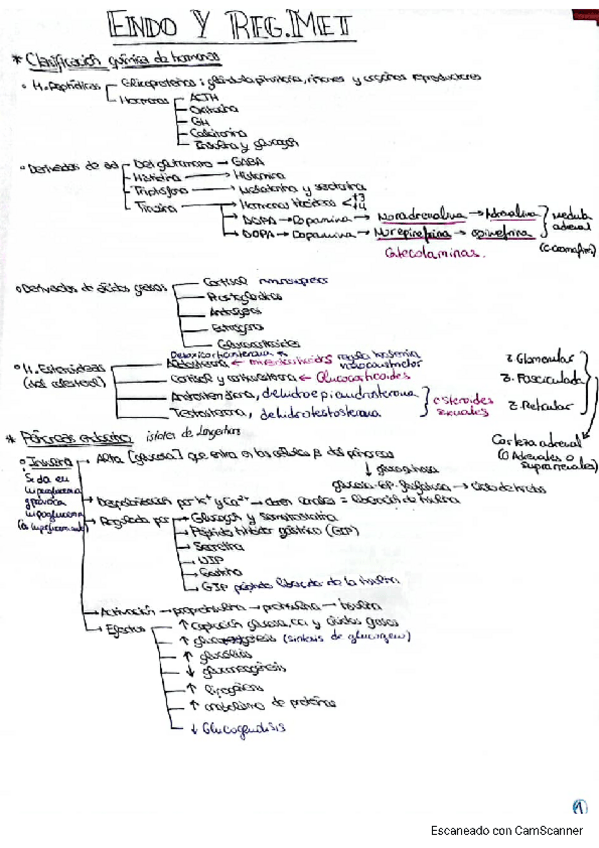 ENDO Y REG.MET
* Clasificación química de hormonas
H. Peptídicas
Glicoproteínas: glándula pituitaria, riñones y órganos reproductores
Hormonas
ACTH
Oxitocina
GH
Calcitonina
Insulina y glucagón
Derivados de aa
Del glutamato → GABA
Histidina → Histamina
Triptófano → Melatonina y serotonina
Tirosina → Hormonas tiroideas < T3 T4
DOPA → Dopamina → Noradrenalina → Adrenalina
DOPA → Dopamina → Norepinefrina → epinefrina
Medula adrenal
(C. cromafines)
Catecolaminas.
Derivados de ácidos grasos
Cortisol
Prostaglandinas
Estrógenos
Glucocorticoides
H. Esteroideas (del colesterol)
Aldosterona ← mineralocorticoides
Cortisol y corticosterona ← Glucocorticoides
Androstendiona, dehidroepiandrosterona
Testosterona, dehidrotestosterona
esteroides sexuales
Z. Glomerular
Z. Fasciculada
Z. Reticular
Corteza adrenal
(G Adrenales o Suprarrenales)
* Páncreas endocrino islotes de Langerhans
Insulina
Se da en hiperglucemia y provoca hipoglucemia
Alta [glucosa] que entra en las células β del páncreas
↓ glucoquinasa
Despolarización por K⁺ y Ca²⁺ → abren canales = liberación de insulina
Regulada por
Glucagón y somatostatina
Péptido inhibidor gástrico (GIP)
Secretina
VIP
Gastrina
GIP péptido liberador de la insulina
Activación → preproinsulina → proinsulina → insulina
Efectos
↑ captación glucosa, aa y ácidos grasos
↑ glucogenogénesis (síntesis de glucógeno)
↑ glucólisis
↓ gluconeogénesis
↑ lipogénesis
↑ anabolismo de proteínas
↓ Glucogenolisis
1
Escaneado con CamScanner